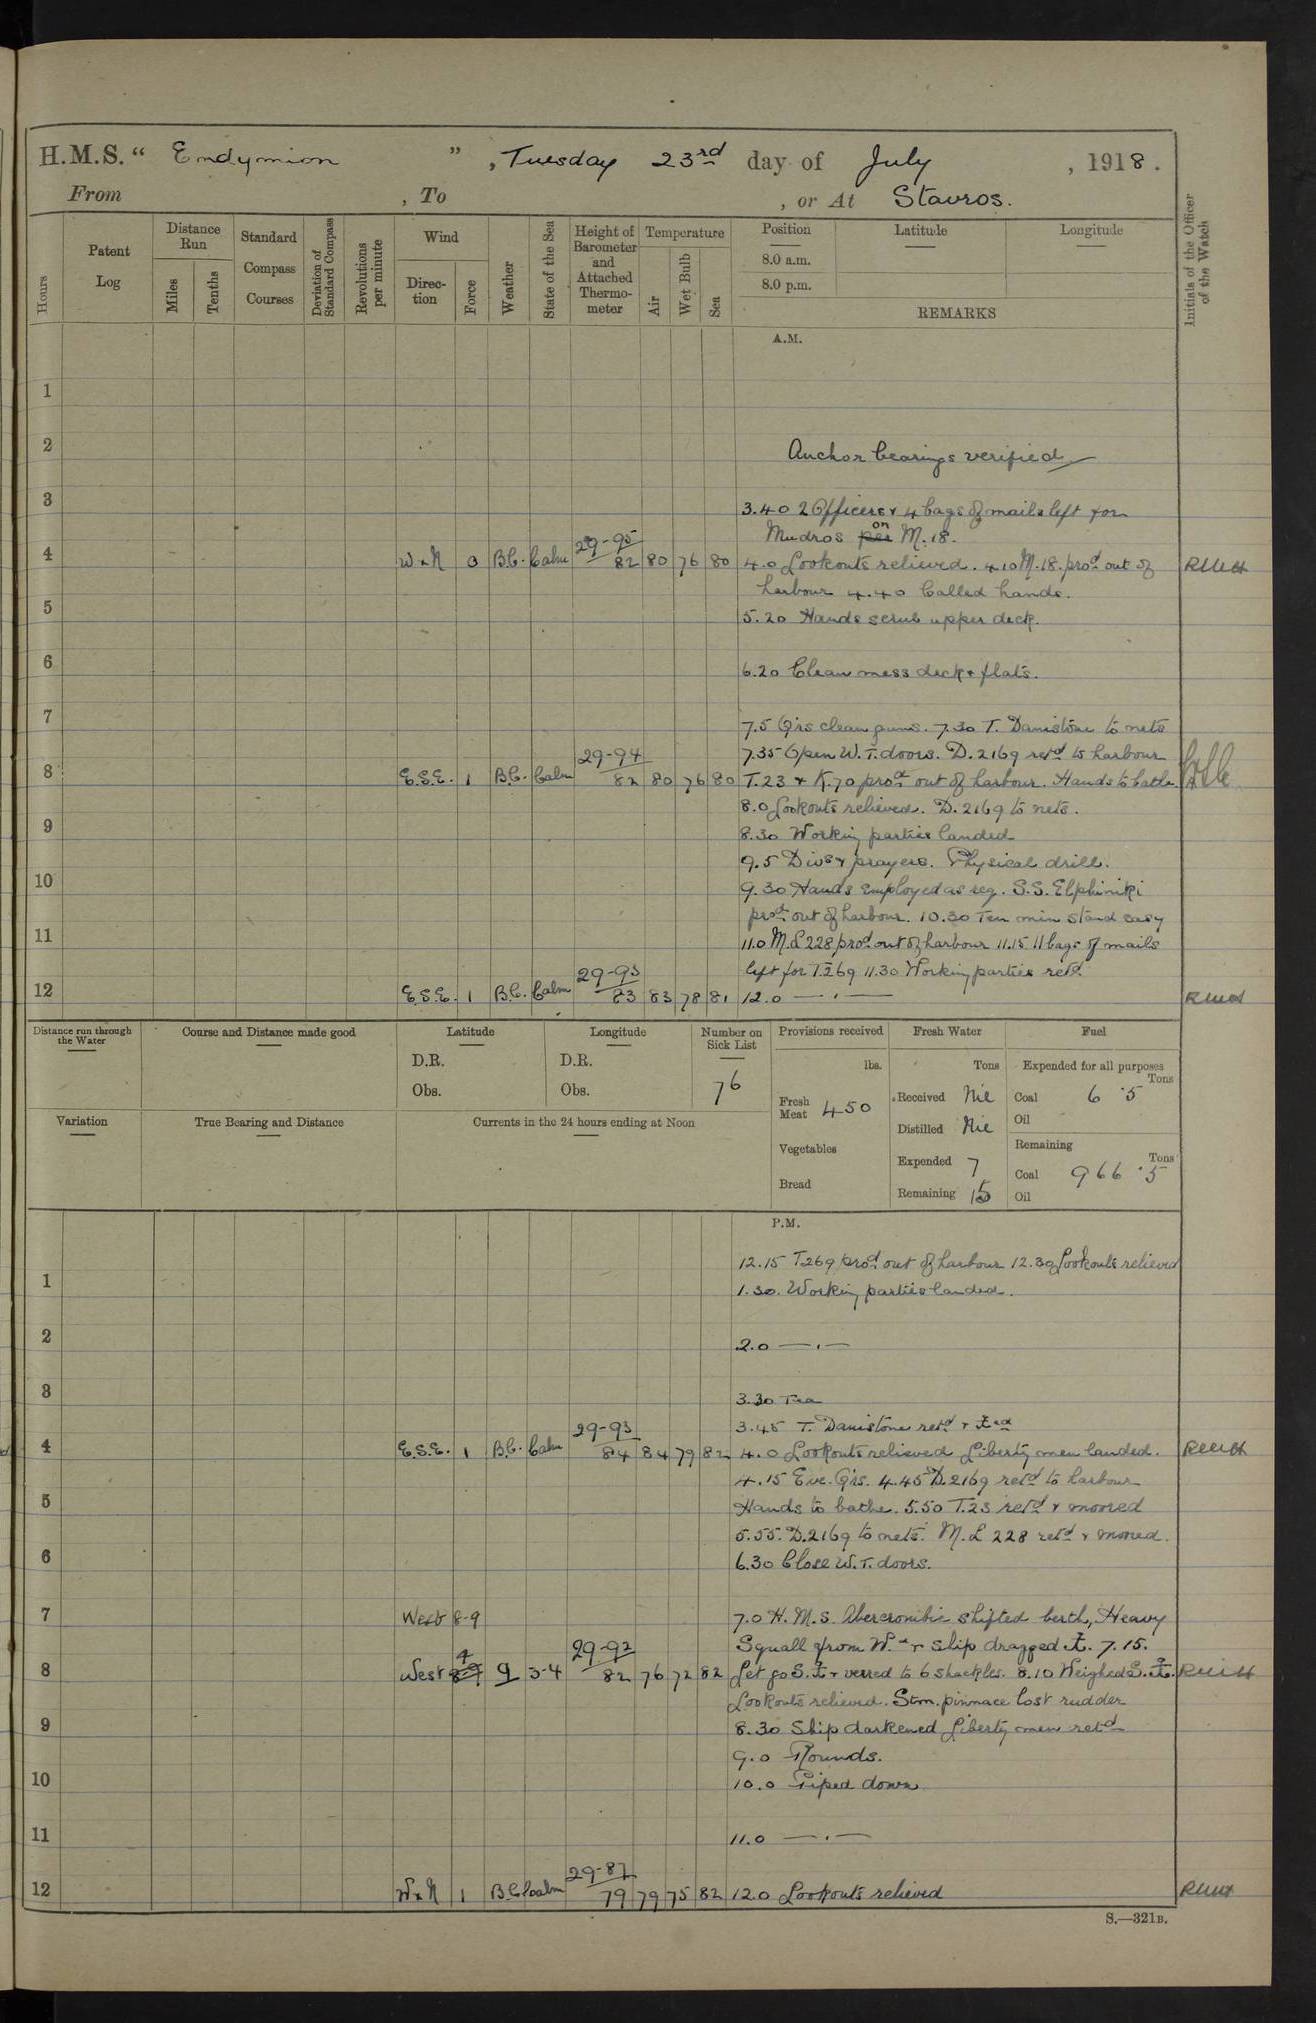 H.M.S. “ Endymion ” , Tuesday 23rd day of July , 1918 .
From , To , or At Stavros.
Hours
Patent Log
Distance Run
Miles
Tenths
Standard Compass Courses
Deviation of Standard Compass
Revolutions per minute
Wind
Direc-tion
Force
Weather
State of the Sea
Height of Barometer and Attached Thermo-meter
Temperature
Air
Wet Bulb
Sea
Position
8.0 a.m.
8.0 p.m.
Latitude
Longitude
REMARKS
Initials of the Officer of the Watch
A.M.
1
2
Anchor bearings verified
3
3.40 2 Officers & 4 bags of mails left for
Mudros per on M.18.
4 W x N 0 B.C. Calm 29-95 82 80 76 80 4.0 Lookouts relieved. 4.10 M.18. procd out of
harbour 4.40 Called hands.
5
5.20 Hands scrub upper deck.
6
6.20 Clean mess deck & flats.
7
7.5 Qrs clean guns. 7.30 T. Danistone to nets
7.35 Open W.T. doors. D.2169 retd to harbour
8 E.S.E. 1 B.C. Calm 29-94 82 80 76 80 T.23 & K.70 procd out of harbour. Hands to bathe
8.0 Lookouts relieved. D.2169 to nets.
9
8.30 Working parties landed
9.5 Divs & prayers. Physical drill.
10
9.30 Hands employed as req. S.S. Elphiniki
procd out of harbour. 10.30 Ten min stand easy
11
11.0 M.L 228 procd out of harbour 11.15 11 bags of mails
left for T.269 11.30 Working parties retd.
12 E.S.E. 1 B.C. Calm 29-93 83 83 78 81 12.0 — . —
Distance run through the Water
Course and Distance made good
Latitude
D.R.
Obs.
Longitude
D.R.
Obs.
Number on Sick List
76
Provisions received
lbs.
Fresh Meat 450
Vegetables
Bread
Fresh Water
Tons
Received Nil
Distilled Nil
Expended 7
Remaining 15
Fuel
Expended for all purposes
Tons
Coal 6 .5
Oil
Remaining
Tons
Coal 966 .5
Oil
Variation
True Bearing and Distance
Currents in the 24 hours ending at Noon
P.M.
12.15 T269 procd out of harbour 12.30 Lookouts relieved
1
1.30. Working parties landed.
2
2.0 — . —
3
3.30 Tea
3.45 T. Danistone retd &
4 E.S.E. 1 B.C. Calm 29-93 84 84 79 82 4.0 Lookouts relieved Liberty men landed.
4.15 Eve. Qrs. 4.45 D.2169 retd to harbour
5
Hands to bathe. 5.50 T.23 retd & moored
5.55. D.2169 to nets. M.L 228 retd & moored.
6
6.30 Close W.T. doors.
7 West 8-9 7.0 H.M.S. Abercrombie shifted berth, Heavy
Squall from W. & ship dragged ⚓. 7.15.
8 West 4 q 3-4 29-92 82 76 72 82 Let go S.⚓ & veered to 6 shackles. 8.10 Weighed S.⚓.
Lookouts relieved. Stm. pinnace lost rudder
9
8.30 Ship darkened Liberty men retd
9.0 Rounds.
10
10.0 Piped down
11
11.0 — . —
12 W x N 1 B.C Calm 29-87 79 79 75 82 12.0 Lookouts relieved
S.—321B.